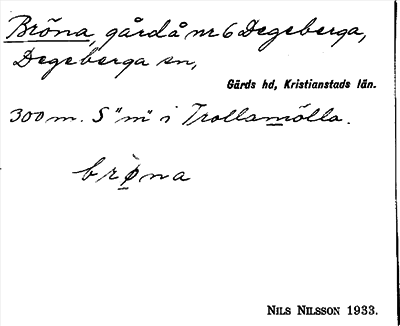 Bröna, gård å nr 6 Degeberga,
Degeberga sn,
Gärds hd, Kristianstads län.
300 m. S "m" i Trollamölla.
brøna
NILS NILSSON 1933.